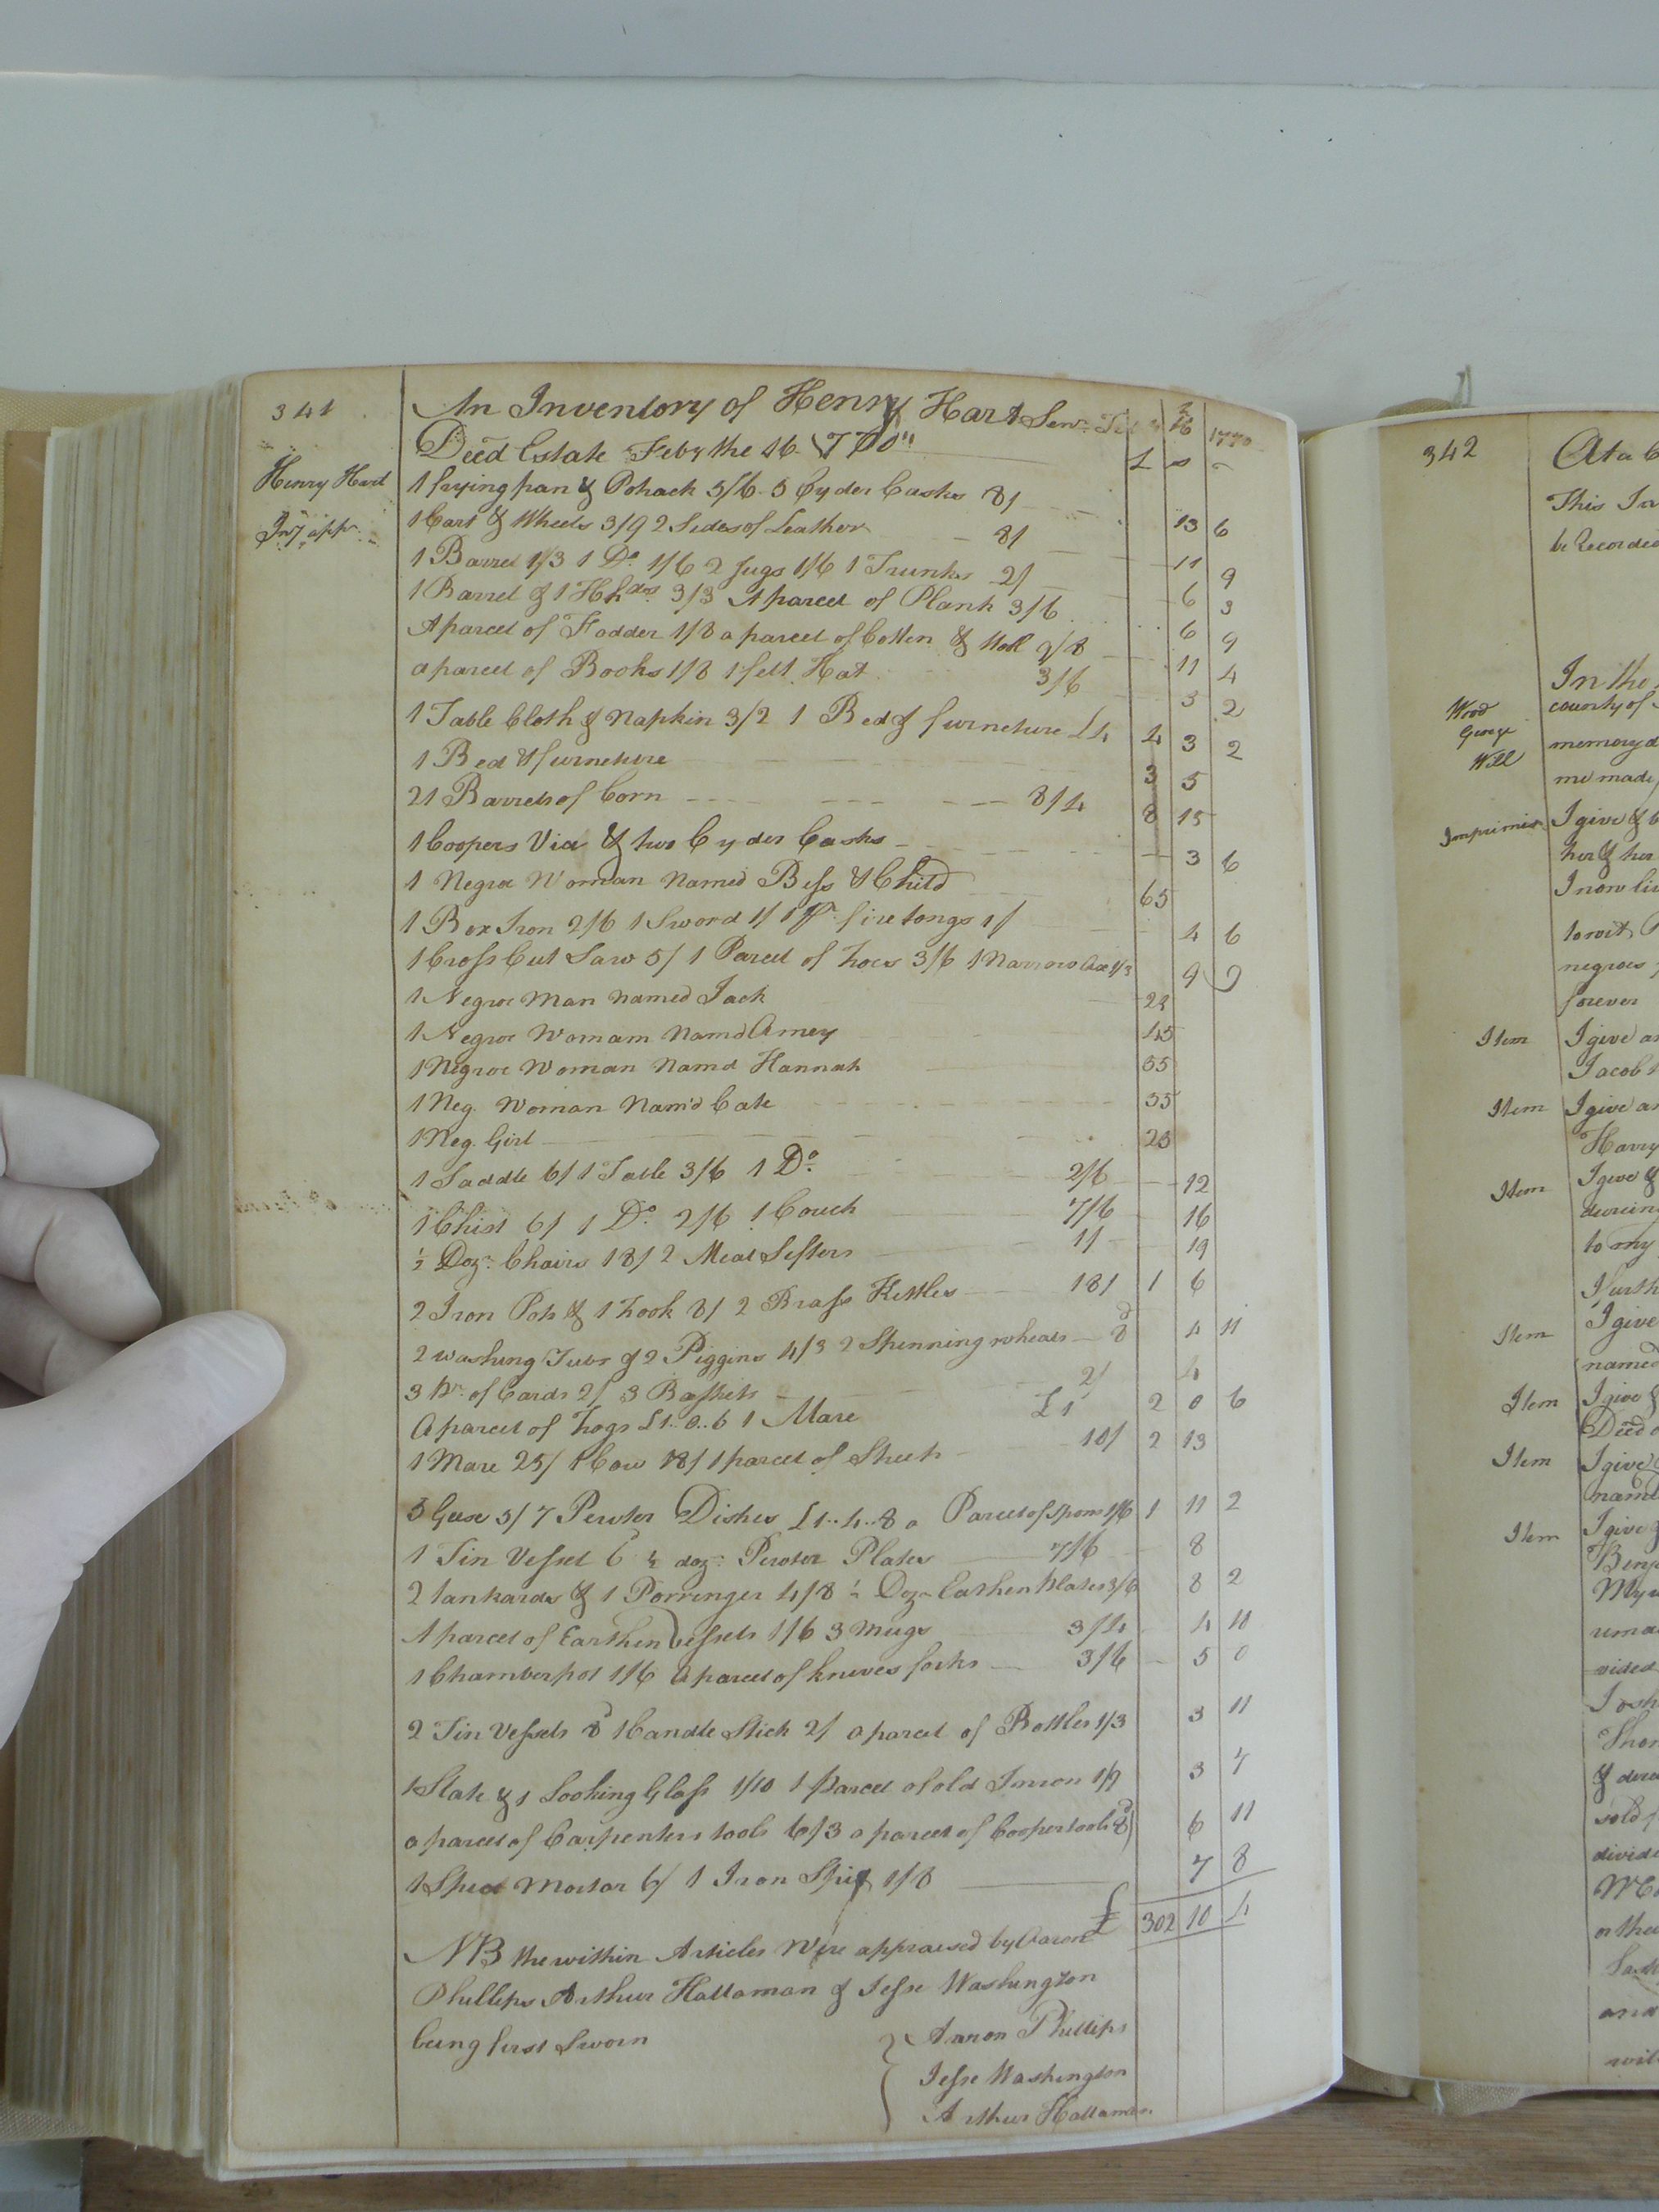 341
An Inventory of Henry Hart Senr. 16 1770
Deēd Estate Feby the 16. 1770" £ s
Henry Hart
Invy appr
1 frying pan & Pohack 5/6. 5 Cyder Casks 8/ 13 6
1 Cart & Wheels 3/9 2 Sides of Leather 8/ 11 9
1 Barrel 1/3 1 Do. 1/6 2 Jugs 1/6 1 Trunks 2/ 6 3
1 Barrel & 1 Hhds 3/3 A parcel of Plank 3/6 6 9
A parcel of Fodder 1/8 a parcel of Cotten & 9/8 11 4
a parcel of Books 1/8 1 felt Hat 3/6 5 2
1 Table Cloth & Napkin 3/2 1 Bed & furneture £4 4 3 2
1 Bed & furneture 3 5
21 Barrels of Corn 8/4 8 15
1 Coopers & two Cyder Casks 3 6
1 Negroe Woman Named Bess & Child 65
1 Box Iron 2/6 1 Sword 1/ 1 pr fire tongs 1/ 4 6
1 Cross Cut Saw 5/ 1 Parcel of hoes 3/6 1 Narrow Axe 1/3 9 9
1 Negroe Man named Jack
1 Negroe Womam Namd Amey 45
1 Negroe Woman Namd Hannah 55
1 Neg. Woman Nam'd Cate 35
1 Neg. Girl 25
1 Saddle 6/ 1 Table 3/6 1 Do. 2/6 12
1 Chist 6/ 1 Do. 2/6 1 Couch 7/6 16
½ Doz. Chairs 18/ 2 Meal Sifters 1/ 19
2 Iron Pots & 1 hook 8/ 2 Brass Kettles 18/ 1 6
2 Washing Tubs & 2 Piggins 4/3 2 Spinning wheals 8d 4 11
3 Pr. of Cards 2/ 3 Baskets 2/ 4
A parcel of hogs £1..0..6 1 Mare £1 2 0 6
1 Mare 25/ 1 Cow 18/ 1 parcel of Sheets 10/ 2 13
5 Geese 5/ 7 Pewter Dishes £1..4..8 a Parcel of Spoons 1/6 1 11 2
1 Tin Vessel 6d ½ doz. Pewter Plates 7/6 8
2 tankards & 1 Porringer 4/8 ½ Doz. Earthen Plates 3/6 8 2
A parcel of Earthen Vessels 1/6 3 mugs 3/4 4 10
1 Chamberpot 1/6 a parcel of knives forks 3/6 5 0
2 Tin Vessels 8d 1 Candle Stick 2/ a parcel of Bottles 1/3 3 11
1 Slate & 1 Looking Glass 1/10 1 Parcel of old Inron 1/9 3 7
a parcel of Carpenters tools 6/3 a parcel of Cooper tools 8d 6 11
1 Spice Mortar 6/ 1 Iron 1/8 7 8
£ 302 10 4
NB the within Articles Were appraised by Aaron
Phillips Arthur Hallaman & Jesse Washington
being first Sworn
Aaron Phillips
Jesse Washington
Arthur Hallaman
342
At a C
This In
be Recorded
In the
county of
Wood
George
Will
memory
me made
Imprimis I give & b
her & her
I now liv
to wit
negroes
forever
Item I give an
Jacob
Item I give an
Harry
Item I give &
dureing
to my
Item I give
named
Item I give &
Deēd
Item I give
named
Item I give
Benj